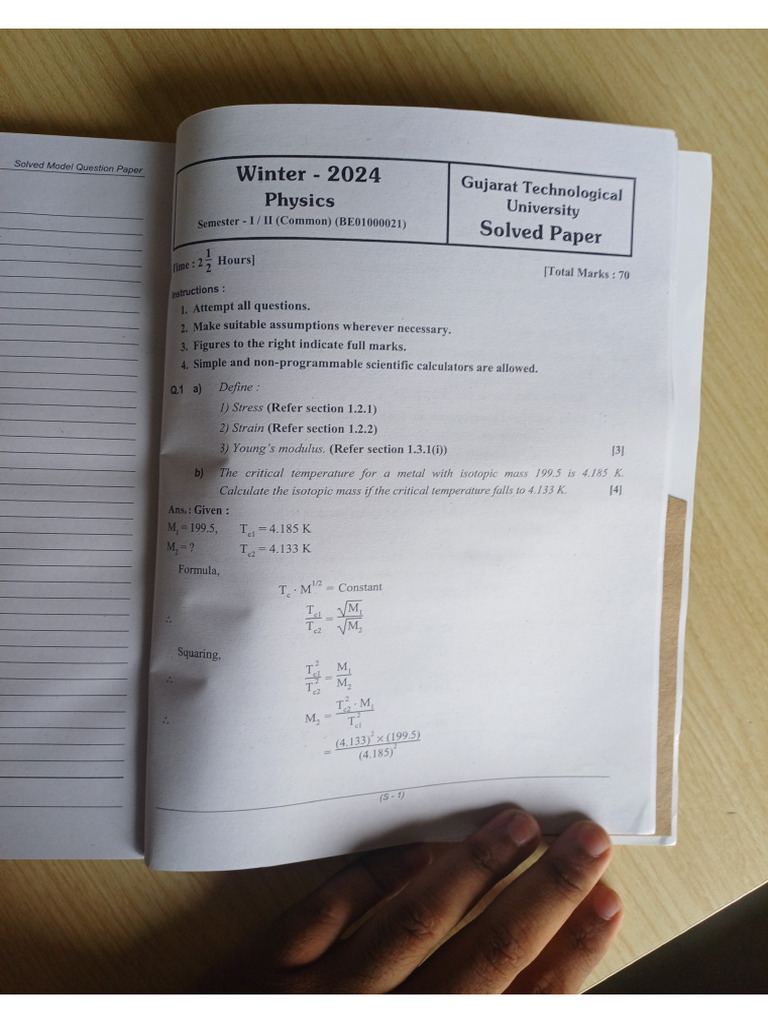 Solved Model Question Paper
Winter - 2024
Physics
Semester - I / II (Common) (BE01000021)
Gujarat Technological
University
Solved Paper
Time : 2 1/2 Hours]
[Total Marks : 70
Instructions :
1. Attempt all questions.
2. Make suitable assumptions wherever necessary.
3. Figures to the right indicate full marks.
4. Simple and non-programmable scientific calculators are allowed.
Q.1 a) Define :
1) Stress (Refer section 1.2.1)
2) Strain (Refer section 1.2.2)
3) Young's modulus. (Refer section 1.3.1(i)) [3]
b) The critical temperature for a metal with isotopic mass 199.5 is 4.185 K.
Calculate the isotopic mass if the critical temperature falls to 4.133 K. [4]
Ans. : Given :
M₁ = 199.5, T_c1 = 4.185 K
M₂ = ? T_c2 = 4.133 K
Formula,
T_c · M^1/2 = Constant
∴ T_c1 / T_c2 = √M₁ / √M₂
Squaring,
∴ T_c1² / T_c2² = M₁ / M₂
∴ M₂ = T_c2² · M₁ / T_c1²
= (4.133)² × (199.5) / (4.185)²
(S - 1)